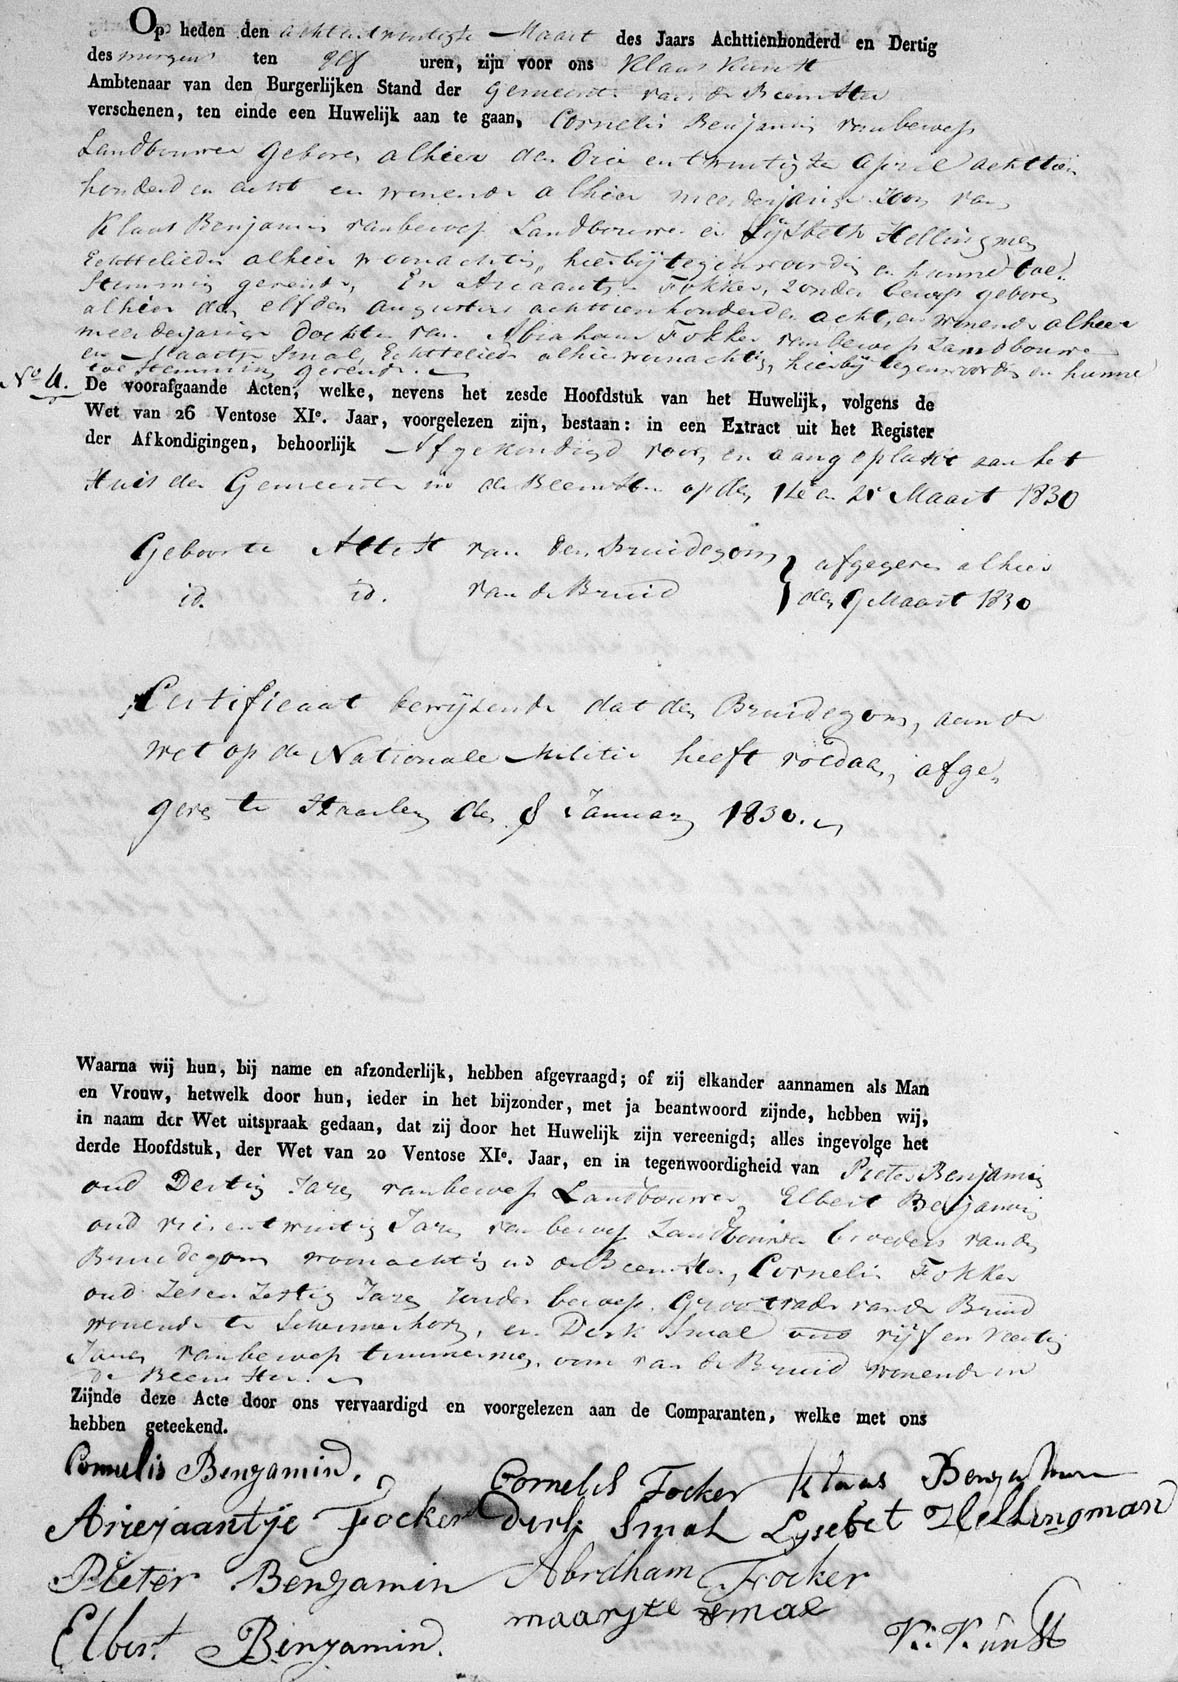 Op heden den achtentwintigste Maart des Jaars Achttienhonderd en Dertig
des morgens ten elf uren, zijn voor ons Klaas Kunst
Ambtenaar van den Burgerlijken Stand der Gemeente van de Beemster
verschenen, ten einde een Huwelijk aan te gaan, Cornelis Benjamin van beroep
Landbouwer geboren alhier den drie en twintigste April achttien
honderd en acht en wonende alhier meerderjarige Zoon van
Klaas Benjamin van beroep Landbouwer en Lijsbeth Hellingman
Echtelieden alhier woonachtig, hierbij tegenwoordig en hunne toe-
stemming gevende, En Ariaantje Fokker, zonder beroep geboren
alhier den elfden Augustus achttienhonderd en acht, en wonende alhier
meerderjarige dochter van Abraham Fokker van beroep Landbouwer
en Maartje Smal, Echtelieden alhier woonachtig, hierbij tegenwoordig en hunne
toestemming gevende.
No 4. De voorafgaande Acten, welke, nevens het zesde Hoofdstuk van het Huwelijk, volgens de
Wet van 26 Ventose XIe. Jaar, voorgelezen zijn, bestaan: in een Extract uit het Register
der Afkondigingen, behoorlijk Afgekondigd voor, en aangeplakt aan het
Huis der Gemeente in de Beemster op den 14e en 21e Maart 1830
Geboorte Attest van den Bruidegom } afgegeven alhier
id. id. van de Bruid } den 9 Maart 1830
Certificaat bewijzende dat den Bruidegom, aan de
wet op de Nationale Militie heeft voldaan, afge-
geven te Haarlem den 8 January 1830.
Waarna wij hun, bij name en afzonderlijk, hebben afgevraagd; of zij elkander aannamen als Man
en Vrouw, hetwelk door hun, ieder in het bijzonder, met ja beantwoord zijnde, hebben wij,
in naam der Wet uitspraak gedaan, dat zij door het Huwelijk zijn vereenigd; alles ingevolge het
derde Hoofdstuk, der Wet van 20 Ventose XIe. Jaar, en in tegenwoordigheid van Pieter Benjamin
oud Dertig Jaren van beroep Landbouwer, Elbert Benjamin
oud vierentwintig Jaren van beroep Landbouwer broeders van den
Bruidegom woonachtig in de Beemster, Cornelis Fokker
oud Zesen Zestig Jaren zonder beroep, Grootvader van de Bruid
wonende te Schermerhorn, en Dirk Smal oud vijf en veertig
Jaren van beroep timmerman, oom van de Bruid wonende in
de Beemster.
Zijnde deze Acte door ons vervaardigd en voorgelezen aan de Comparanten, welke met ons
hebben geteekend.
Cornelis Benjamin. Cornelis Focker Klaas Benjamin
Ariejaantje Focker Dirk Smal Lysebet Hellingman
Pieter Benjamin Abraham Focker
Elbert Benjamin. maartje smal K: Kunst